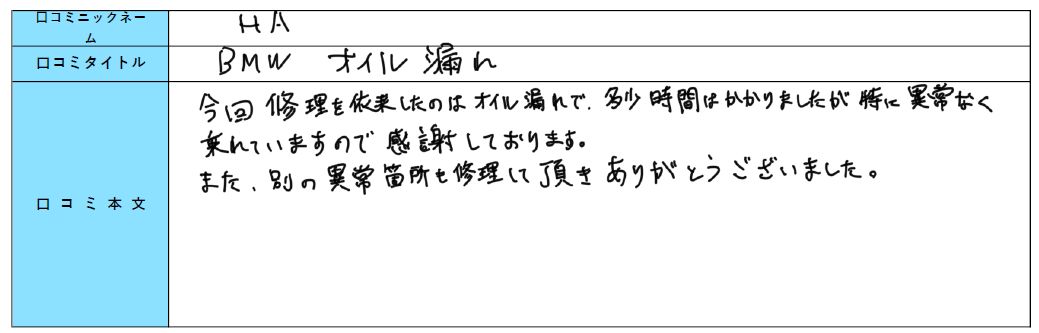 口コミニックネーム HA
口コミタイトル BMW オイル漏れ
口コミ本文
今回修理を依来したのはオイル漏れで、多少時間はかかりましたが特に異常なく
乗れていますので感謝しております。
また、別の異常箇所も修理して頂きありがとうございました。